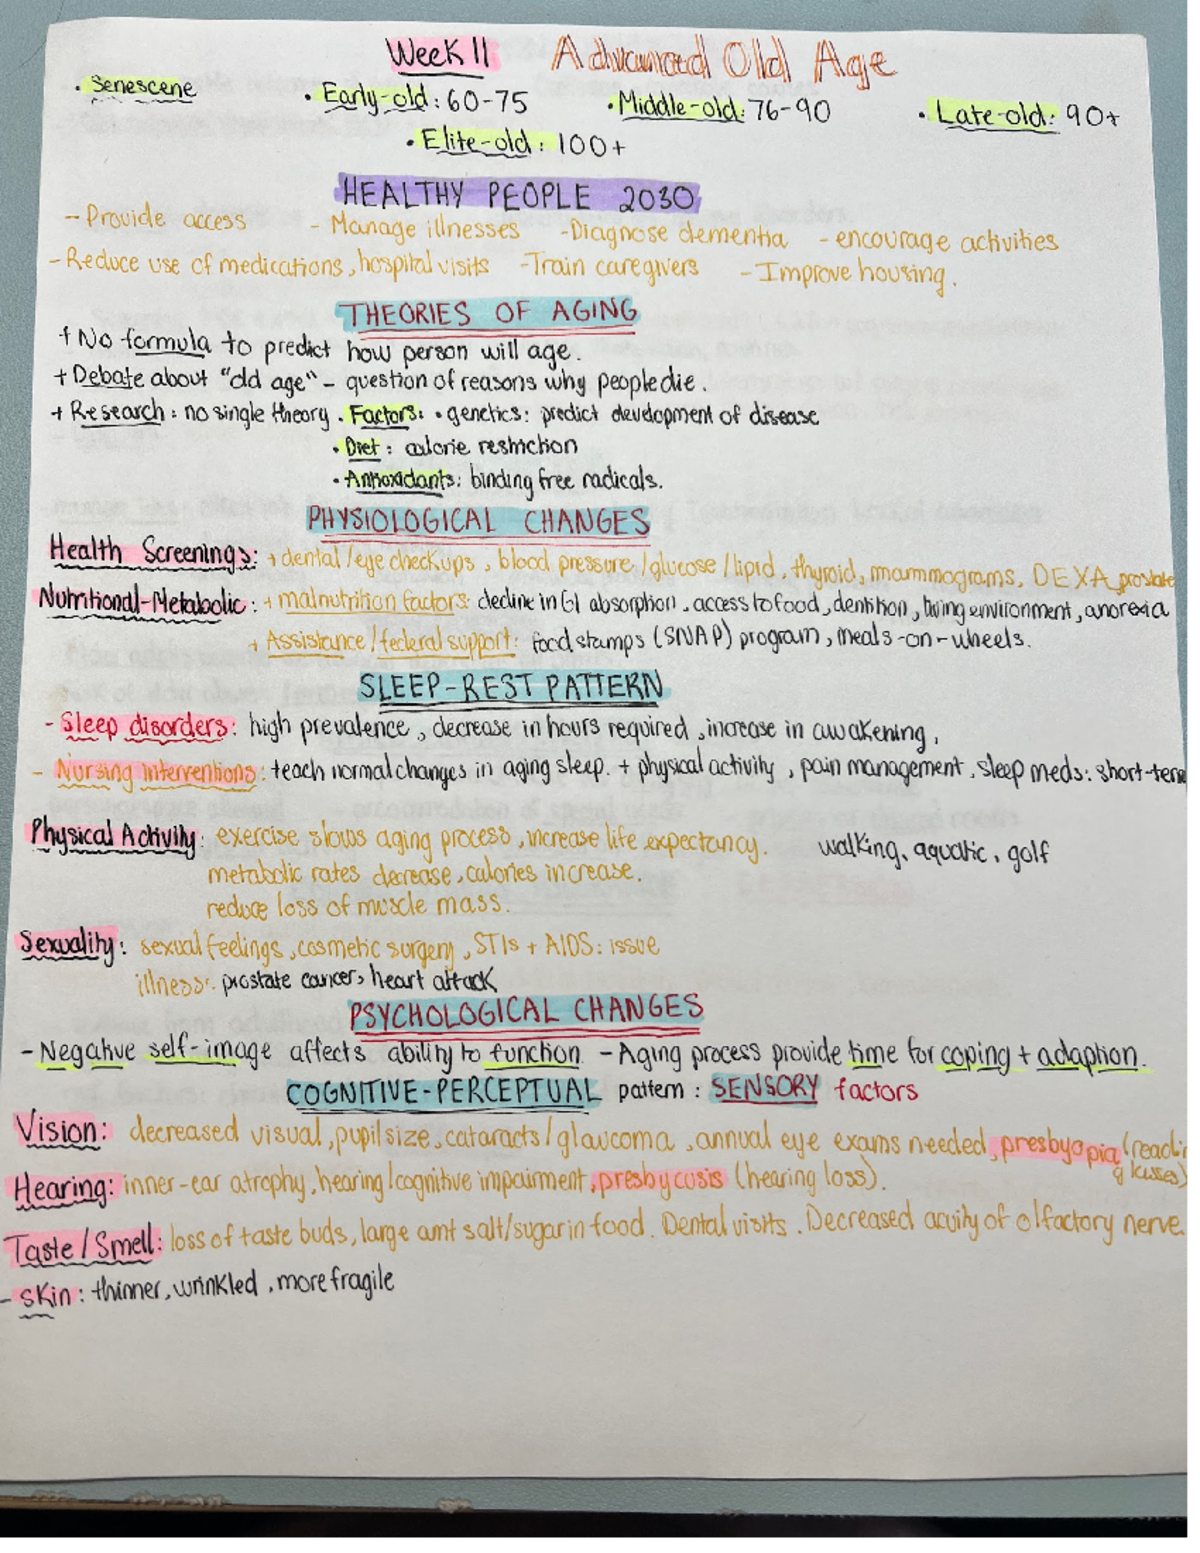 Week 11 Advanced Old Age
• Senescene • Early-old: 60-75 • Middle-old: 76-90 • Late-old: 90+
• Elite-old: 100+
HEALTHY PEOPLE 2030
- Provide access - Manage illnesses - Diagnose dementia - encourage activities
- Reduce use of medications, hospital visits - Train caregivers - Improve housing.
THEORIES OF AGING
+ No formula to predict how person will age.
+ Debate about "old age" - question of reasons why people die.
+ Research: no single theory. Factors: • genetics: predict development of disease
• Diet: calorie restriction
• Antioxidants: binding free radicals.
PHYSIOLOGICAL CHANGES
Health Screenings: + dental/eye checkups, blood pressure/glucose/lipid, thyroid, mammograms, DEXA, prostate
Nutritional-Metabolic: + malnutrition factors: decline in GI absorption, access to food, dentition, living environment, anorexia
+ Assistance/federal support: food stamps (SNAP) program, meals-on-wheels.
SLEEP-REST PATTERN
- Sleep disorders: high prevalence, decrease in hours required, increase in awakening,
- Nursing Interventions: teach normal changes in aging sleep. + physical activity, pain management, sleep meds: short-term
Physical Activity: exercise slows aging process, increase life expectancy. walking, aquatic, golf
metabolic rates decrease, calories increase.
reduce loss of muscle mass.
Sexuality: sexual feelings, cosmetic surgery, STIs + AIDS: issue
illness: prostate cancer, heart attack
PSYCHOLOGICAL CHANGES
- Negative self-image affects ability to function - Aging process provide time for coping + adaption.
COGNITIVE-PERCEPTUAL pattern: SENSORY factors
Vision: decreased visual, pupil size, cataracts/glaucoma, annual eye exams needed, presbyopia (readi
Hearing: inner-ear atrophy, hearing/cognitive impairment, presbycusis (hearing loss).
Taste/Smell: loss of taste buds, large amt salt/sugar in food. Dental visits. Decreased acuity of olfactory nerve.
- Skin: thinner, wrinkled, more fragile